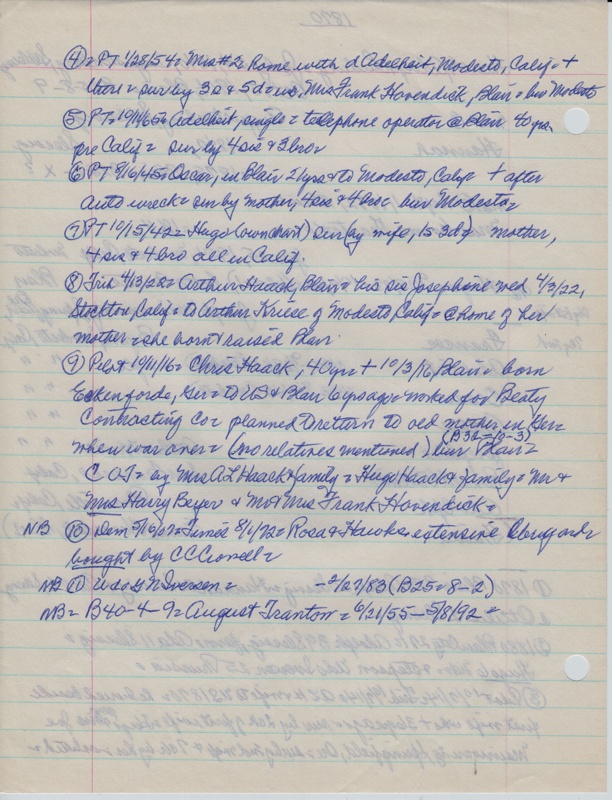 1870
④= PT 1/28/54= Mrs #2= Rome with d Adelheit, Modesto, Calif= +
there= sur by 3s & 5d= us, Mrs Frank Hovendick, Blair= bur Modesto
⑤ PT= 19/1/65= Adelheit, single= telephone operator @ Blair 40 yrs,
pre Calif= sur by 4 sis & 3 bro=
⑥ PT 8/16/45= Oscar, in Blair 21 yrs & to Modesto, Calif= + after
auto wreck= sur by mother, 4 sis & 4 bro= bur Modesto=
⑦ PT 10/15/42= Hugo (own chart) sur by wife, 1s 3d & mother,
4 sis & 4 bro all in Calif.
⑧ Trib 4/13/22= Arthur Haack, Blair= his sis Josephene wed 4/3/22,
Stockton, Calif= to Arthur Kriese of Modesto, Calif= @ home of her
mother= she born & raised Blair.
⑨ Pilot 19/11/16= Chris Haack, 40 yrs + 10/3/16, Blair= born
Eckenforde, Ger= to US & Blair 6 yrs ago= worked for Beaty
Contracting Co= planned to return to old mother in Ger=
when war over= (no relatives mentioned) bur Blair= (B32-10-3)
C OT= by Mrs A L Haack & family= Hugo Haack & family= Mr &
Mrs Harry Beyer & Mr & Mrs Frank Hovendick=
NB ⑩ Dem 5/10/07= Times 8/1/72= Rosa & Hawks extensive
bought by C C Crowell=
NB ⑪ Udo G N Iversen= -2/27/83 (B25=8-2)
NB= B40-4-9= August Trantow= 6/21/55-5/8/92=